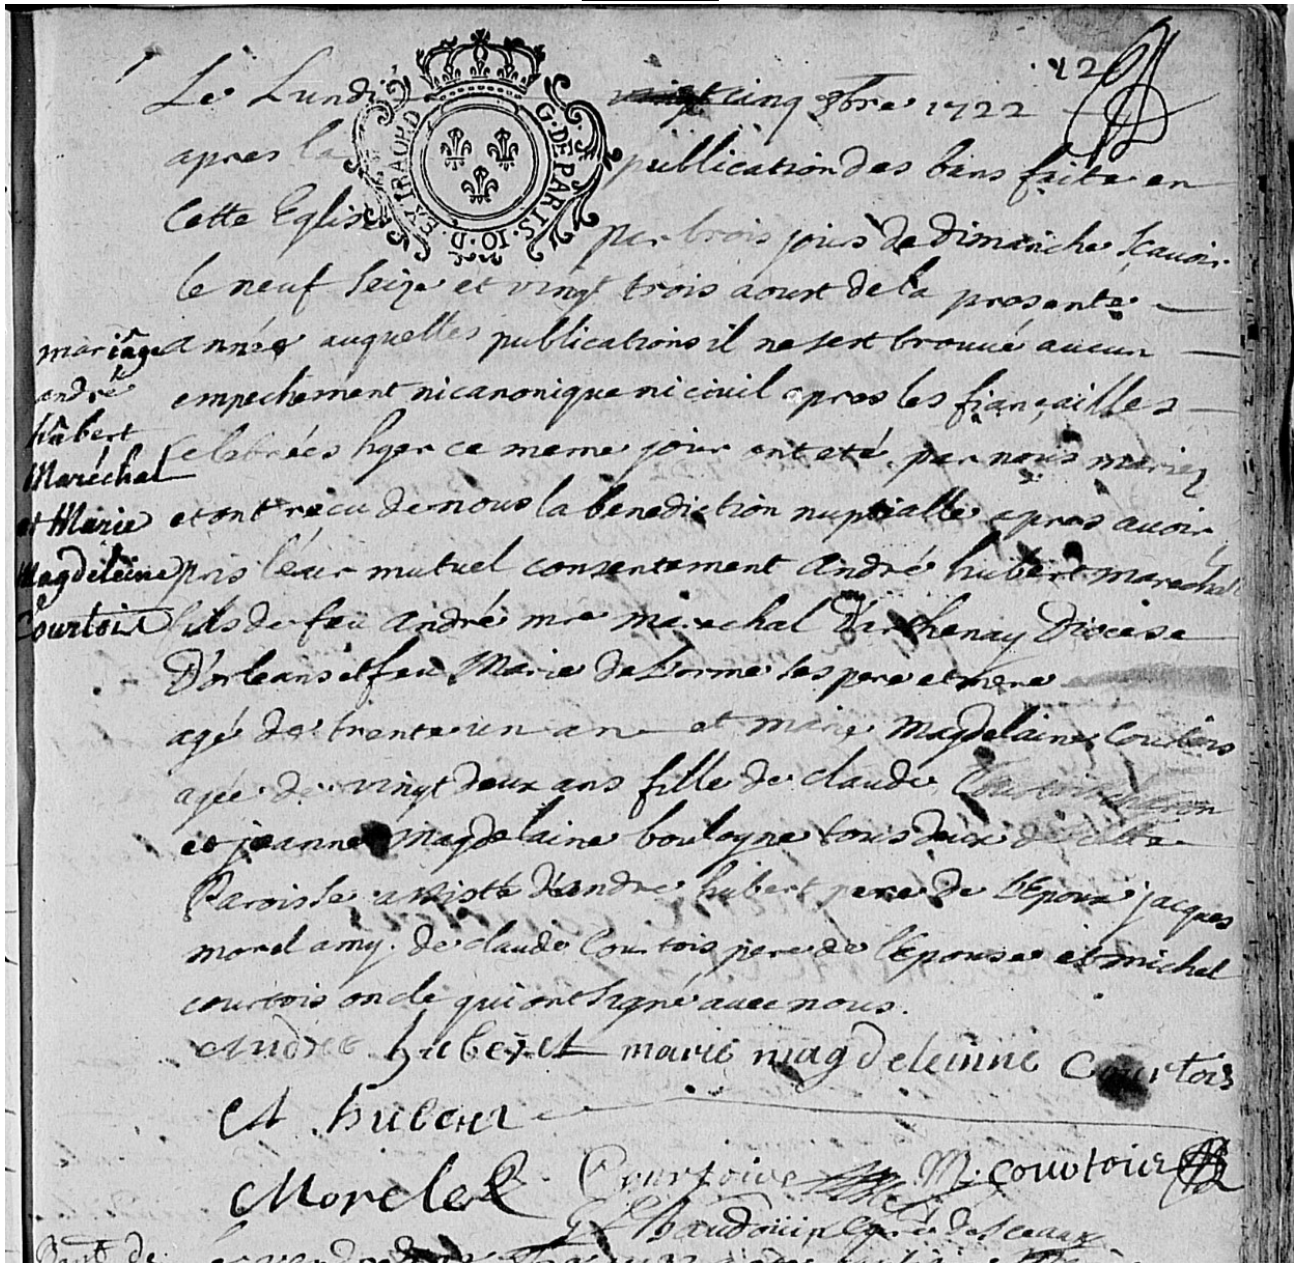 12
Le Lundi cinq 9bre 1722
G. DE PARIS. 10. D. EXTRAORD
apres la publication des bans faite en
Cette Eglise par trois jours de dimanche scavoir
le neuf seize et vingt trois aoust de la presente
année auquelles publications il ne sest trouvé aucun
empechement ni canonique ni civil apres les fiançailles
celebrées hyer ce meme jour ont eté par nous mariez
et ont reçu de nous la benediction nuptialle apres avoir
pris leur mutuel consentement andré hubert marechal
fils de feu andré mre marechal D'Arthenay Diocese
D'orleans et feu Marie de Lorme ses pere et mere
agé de trente un an et marie Magdelaine Courtois
agée de vingt deux ans fille de claude
et jeanne Magdelaine boulogne tous deux de cette
Paroisse assisté d'andré hubert pere de L'Epoux jacques
morel amy. de claude Courtois pere de l'Epouse et michel
courtois oncle qui ont signé avec nous.
mariage
andré
hubert
Maréchal
et Marie
Magdeleine
Courtois
Andre hubert marie magdeleinne Courtois
A hubert
Morel Courtois M. courtois
Baudouin Curé de Sceaux